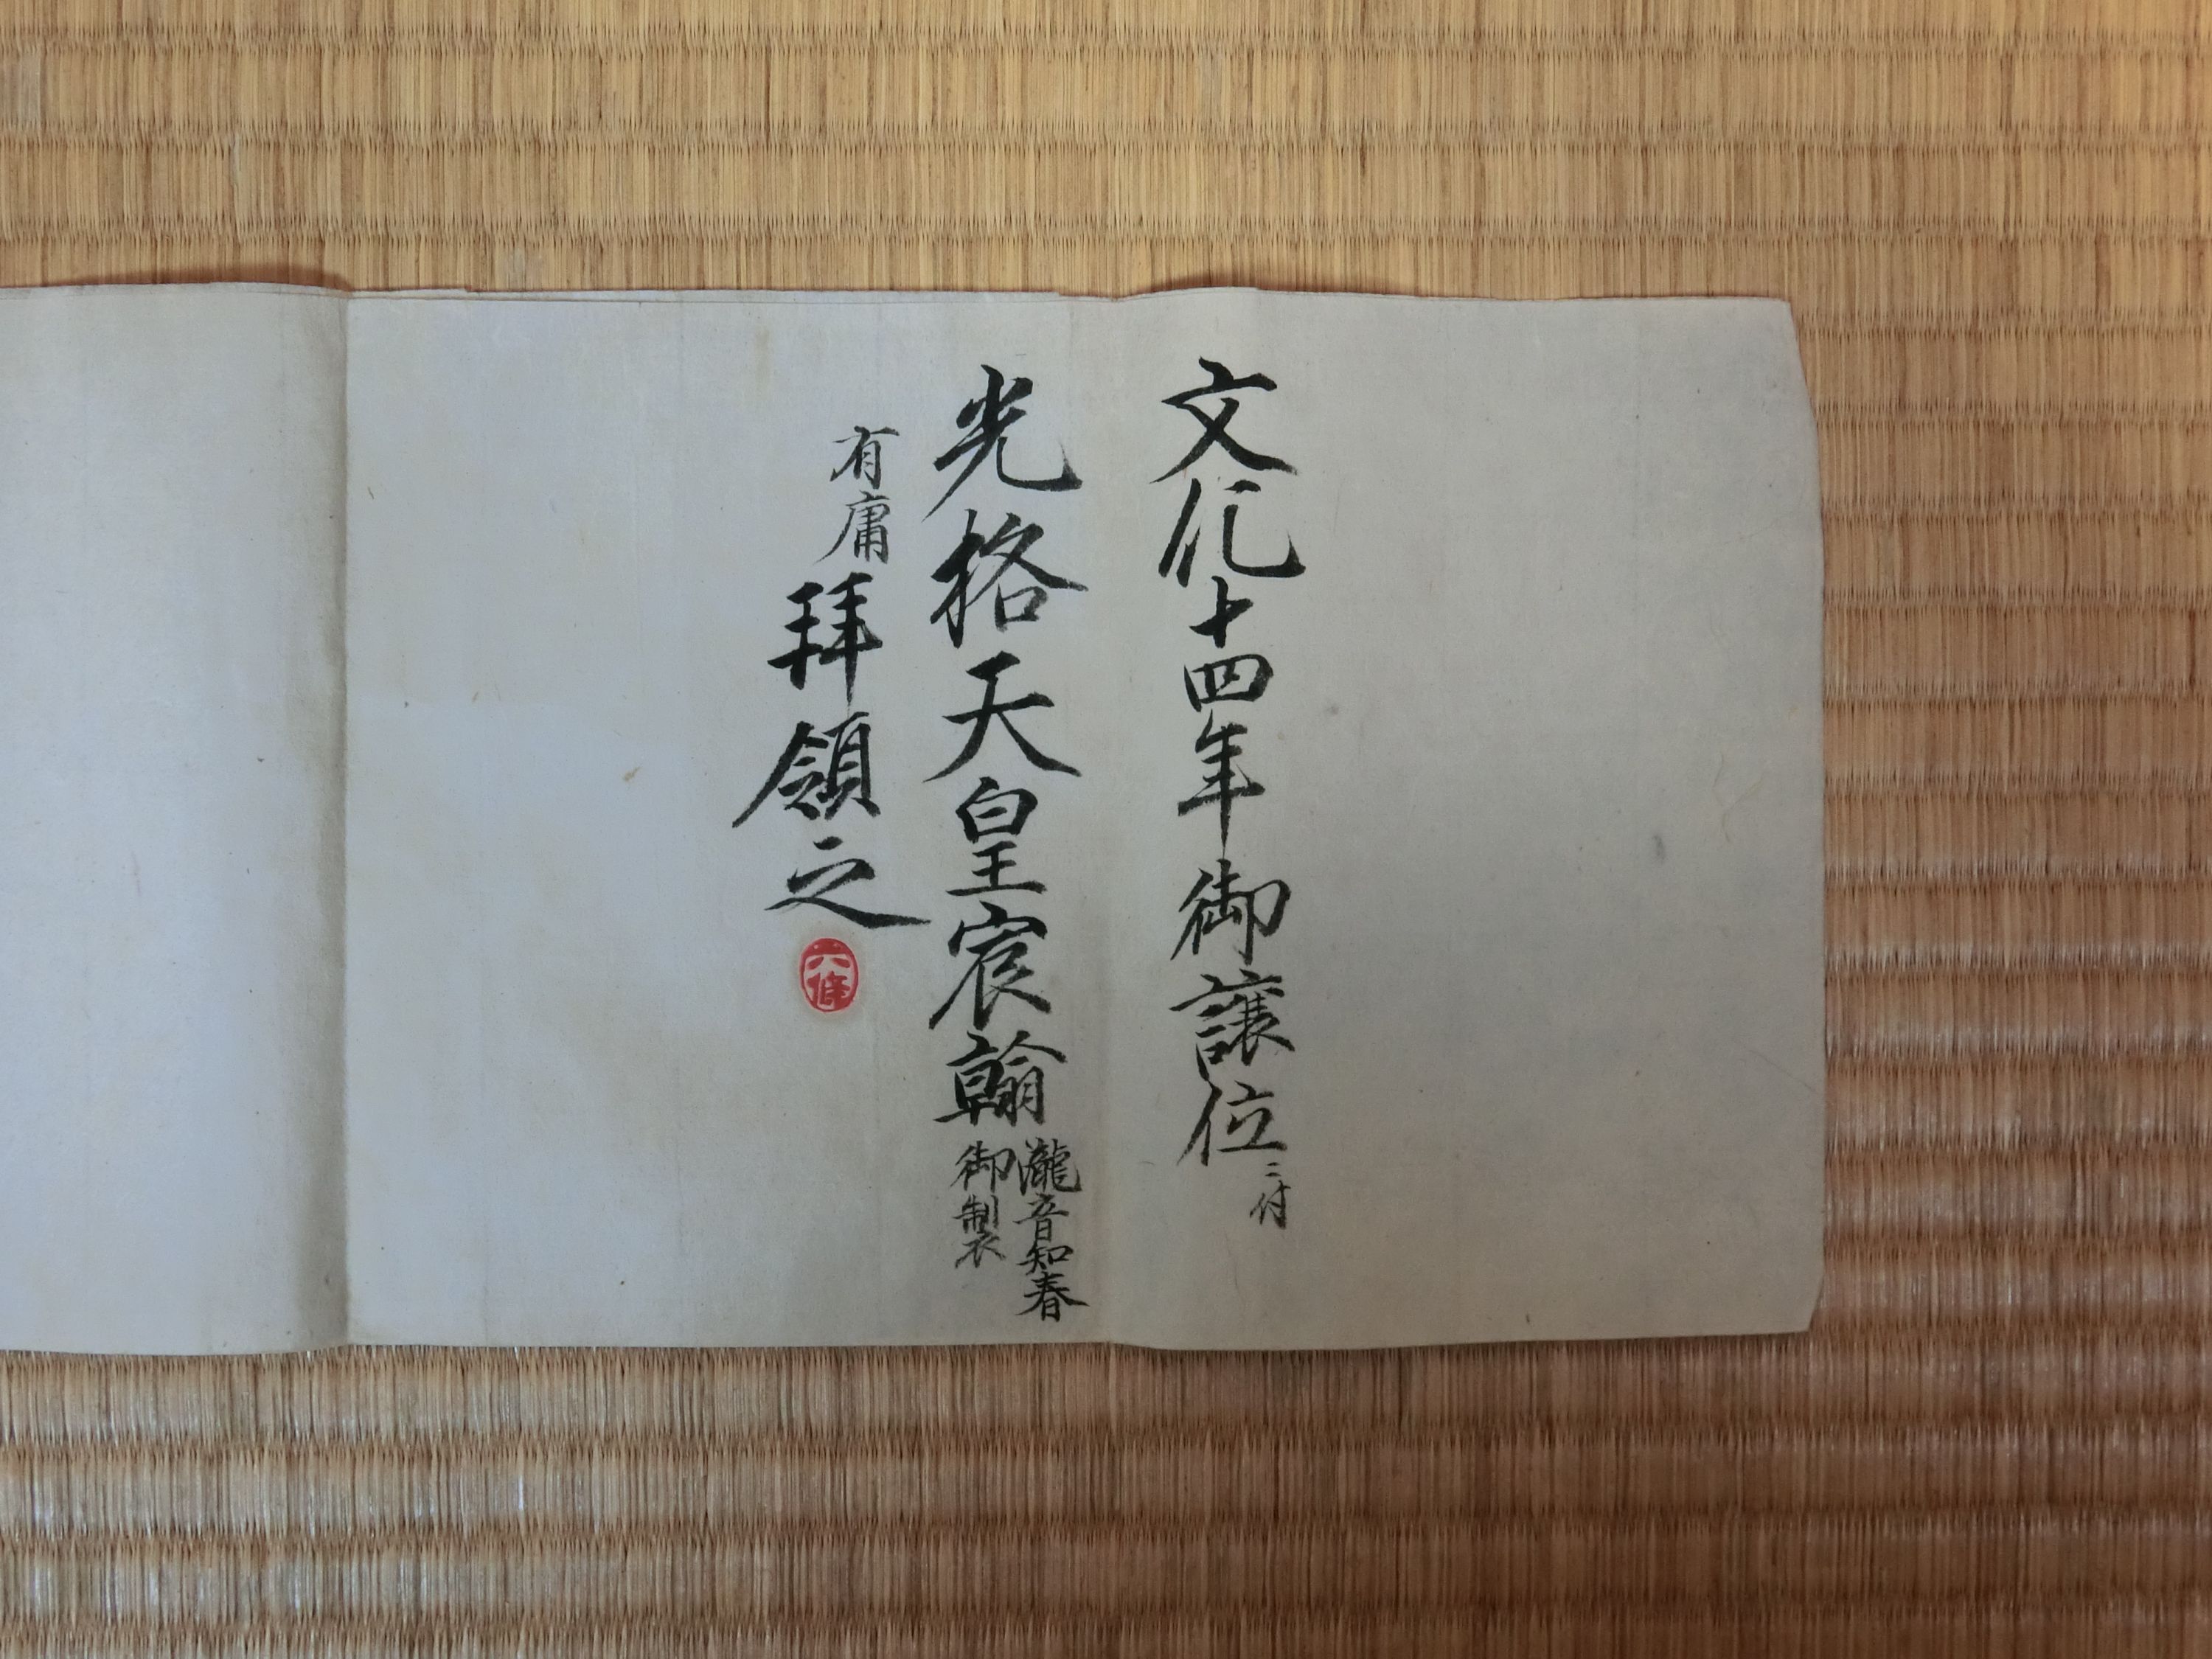 文化十四年御譲位ニ付
光格天皇宸翰
瀧音知春
御製
有庸拜領之
六條